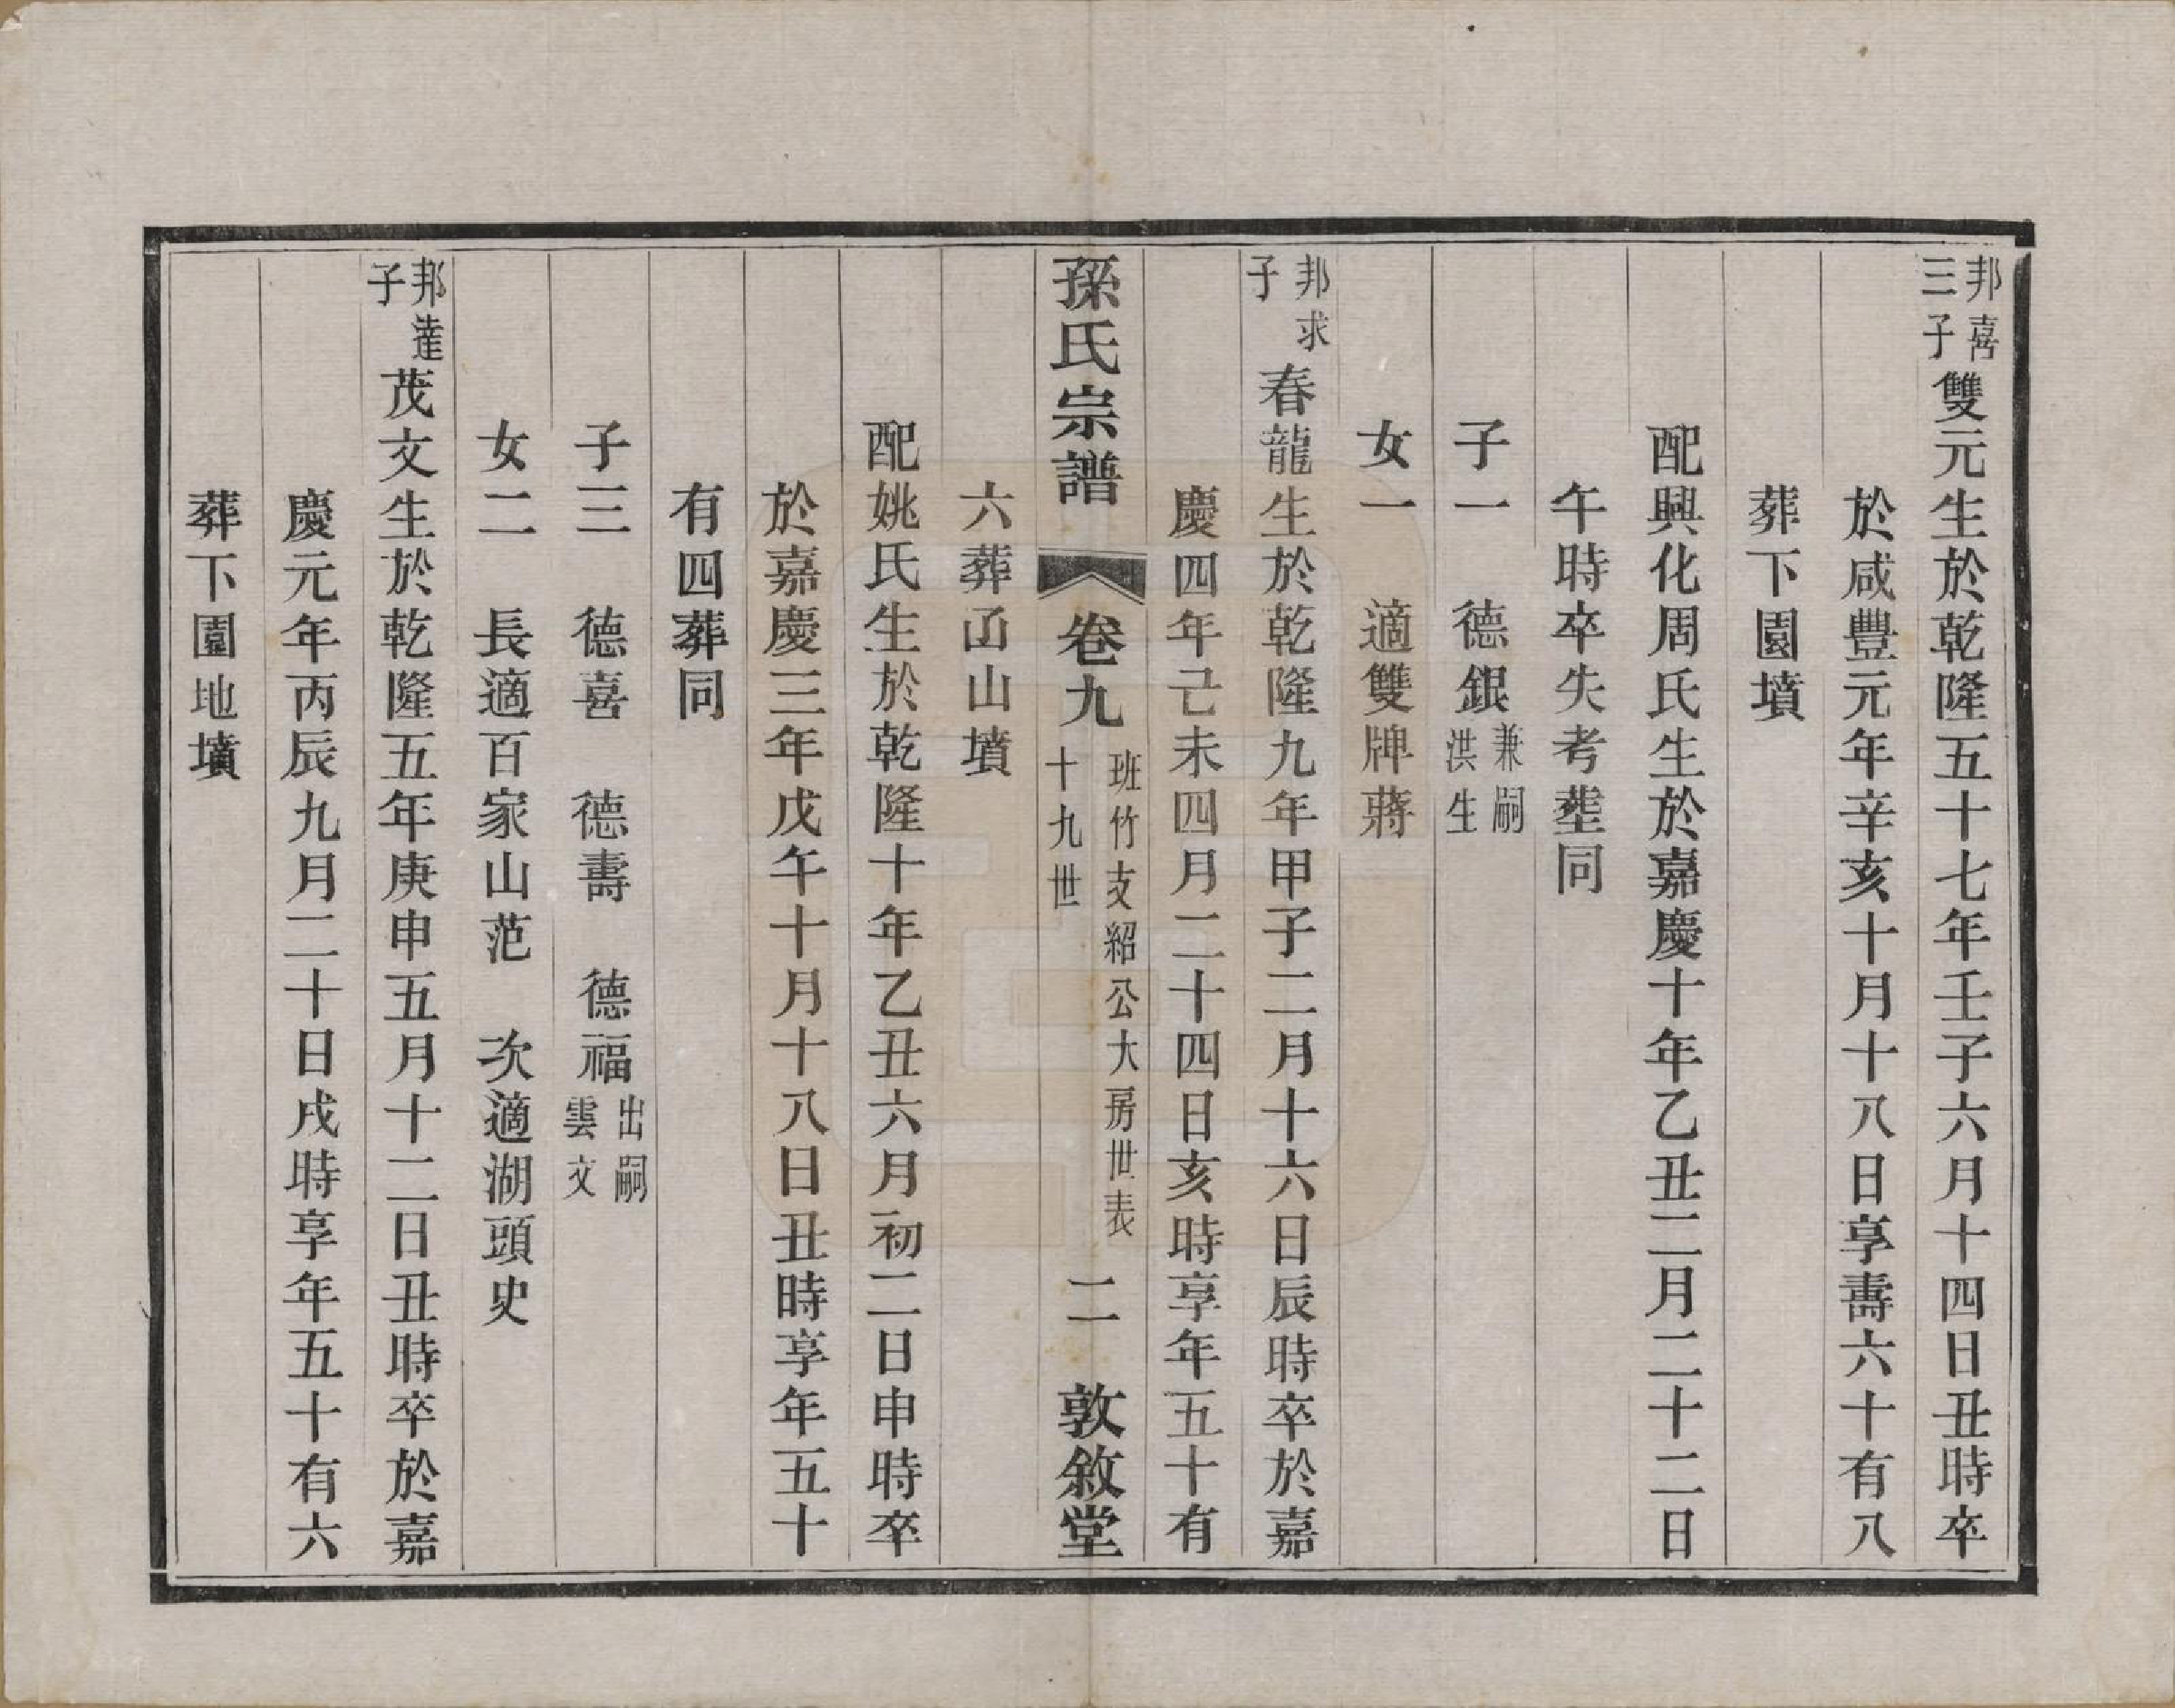 邦喜三子雙元生於乾隆五十七年壬子六月十四日丑時卒
於咸豐元年辛亥十月十八日享壽六十有八
葬下園墳
配興化周氏生於嘉慶十年乙丑二月二十二日
午時卒失考塟同
子一　德銀兼嗣洪生
女一　適雙牌蔣
邦求子春龍生於乾隆九年甲子二月十六日辰時卒於嘉
慶四年己未四月二十四日亥時享年五十有
六葬凾山墳
孫氏宗譜　卷九　班竹支紹公大房世表十九世　二　敦敘堂
配姚氏生於乾隆十年乙丑六月初二日申時卒
於嘉慶三年戊午十月十八日丑時享年五十
有四葬同
子三　德喜　德壽　德福出嗣雲文
女二　長適百家山范　次適湖頭史
邦達子茂文生於乾隆五年庚申五月十二日丑時卒於嘉
慶元年丙辰九月二十日戌時享年五十有六
葬下園地墳